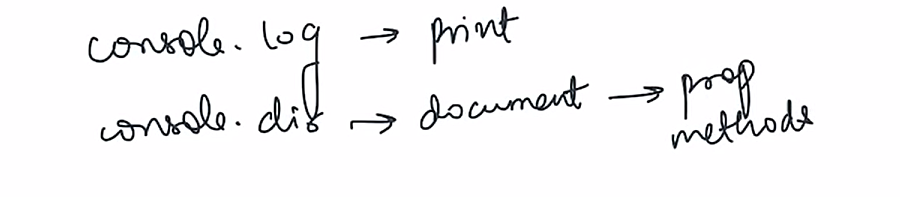 console.log → print
console.dir → document → prop
methods